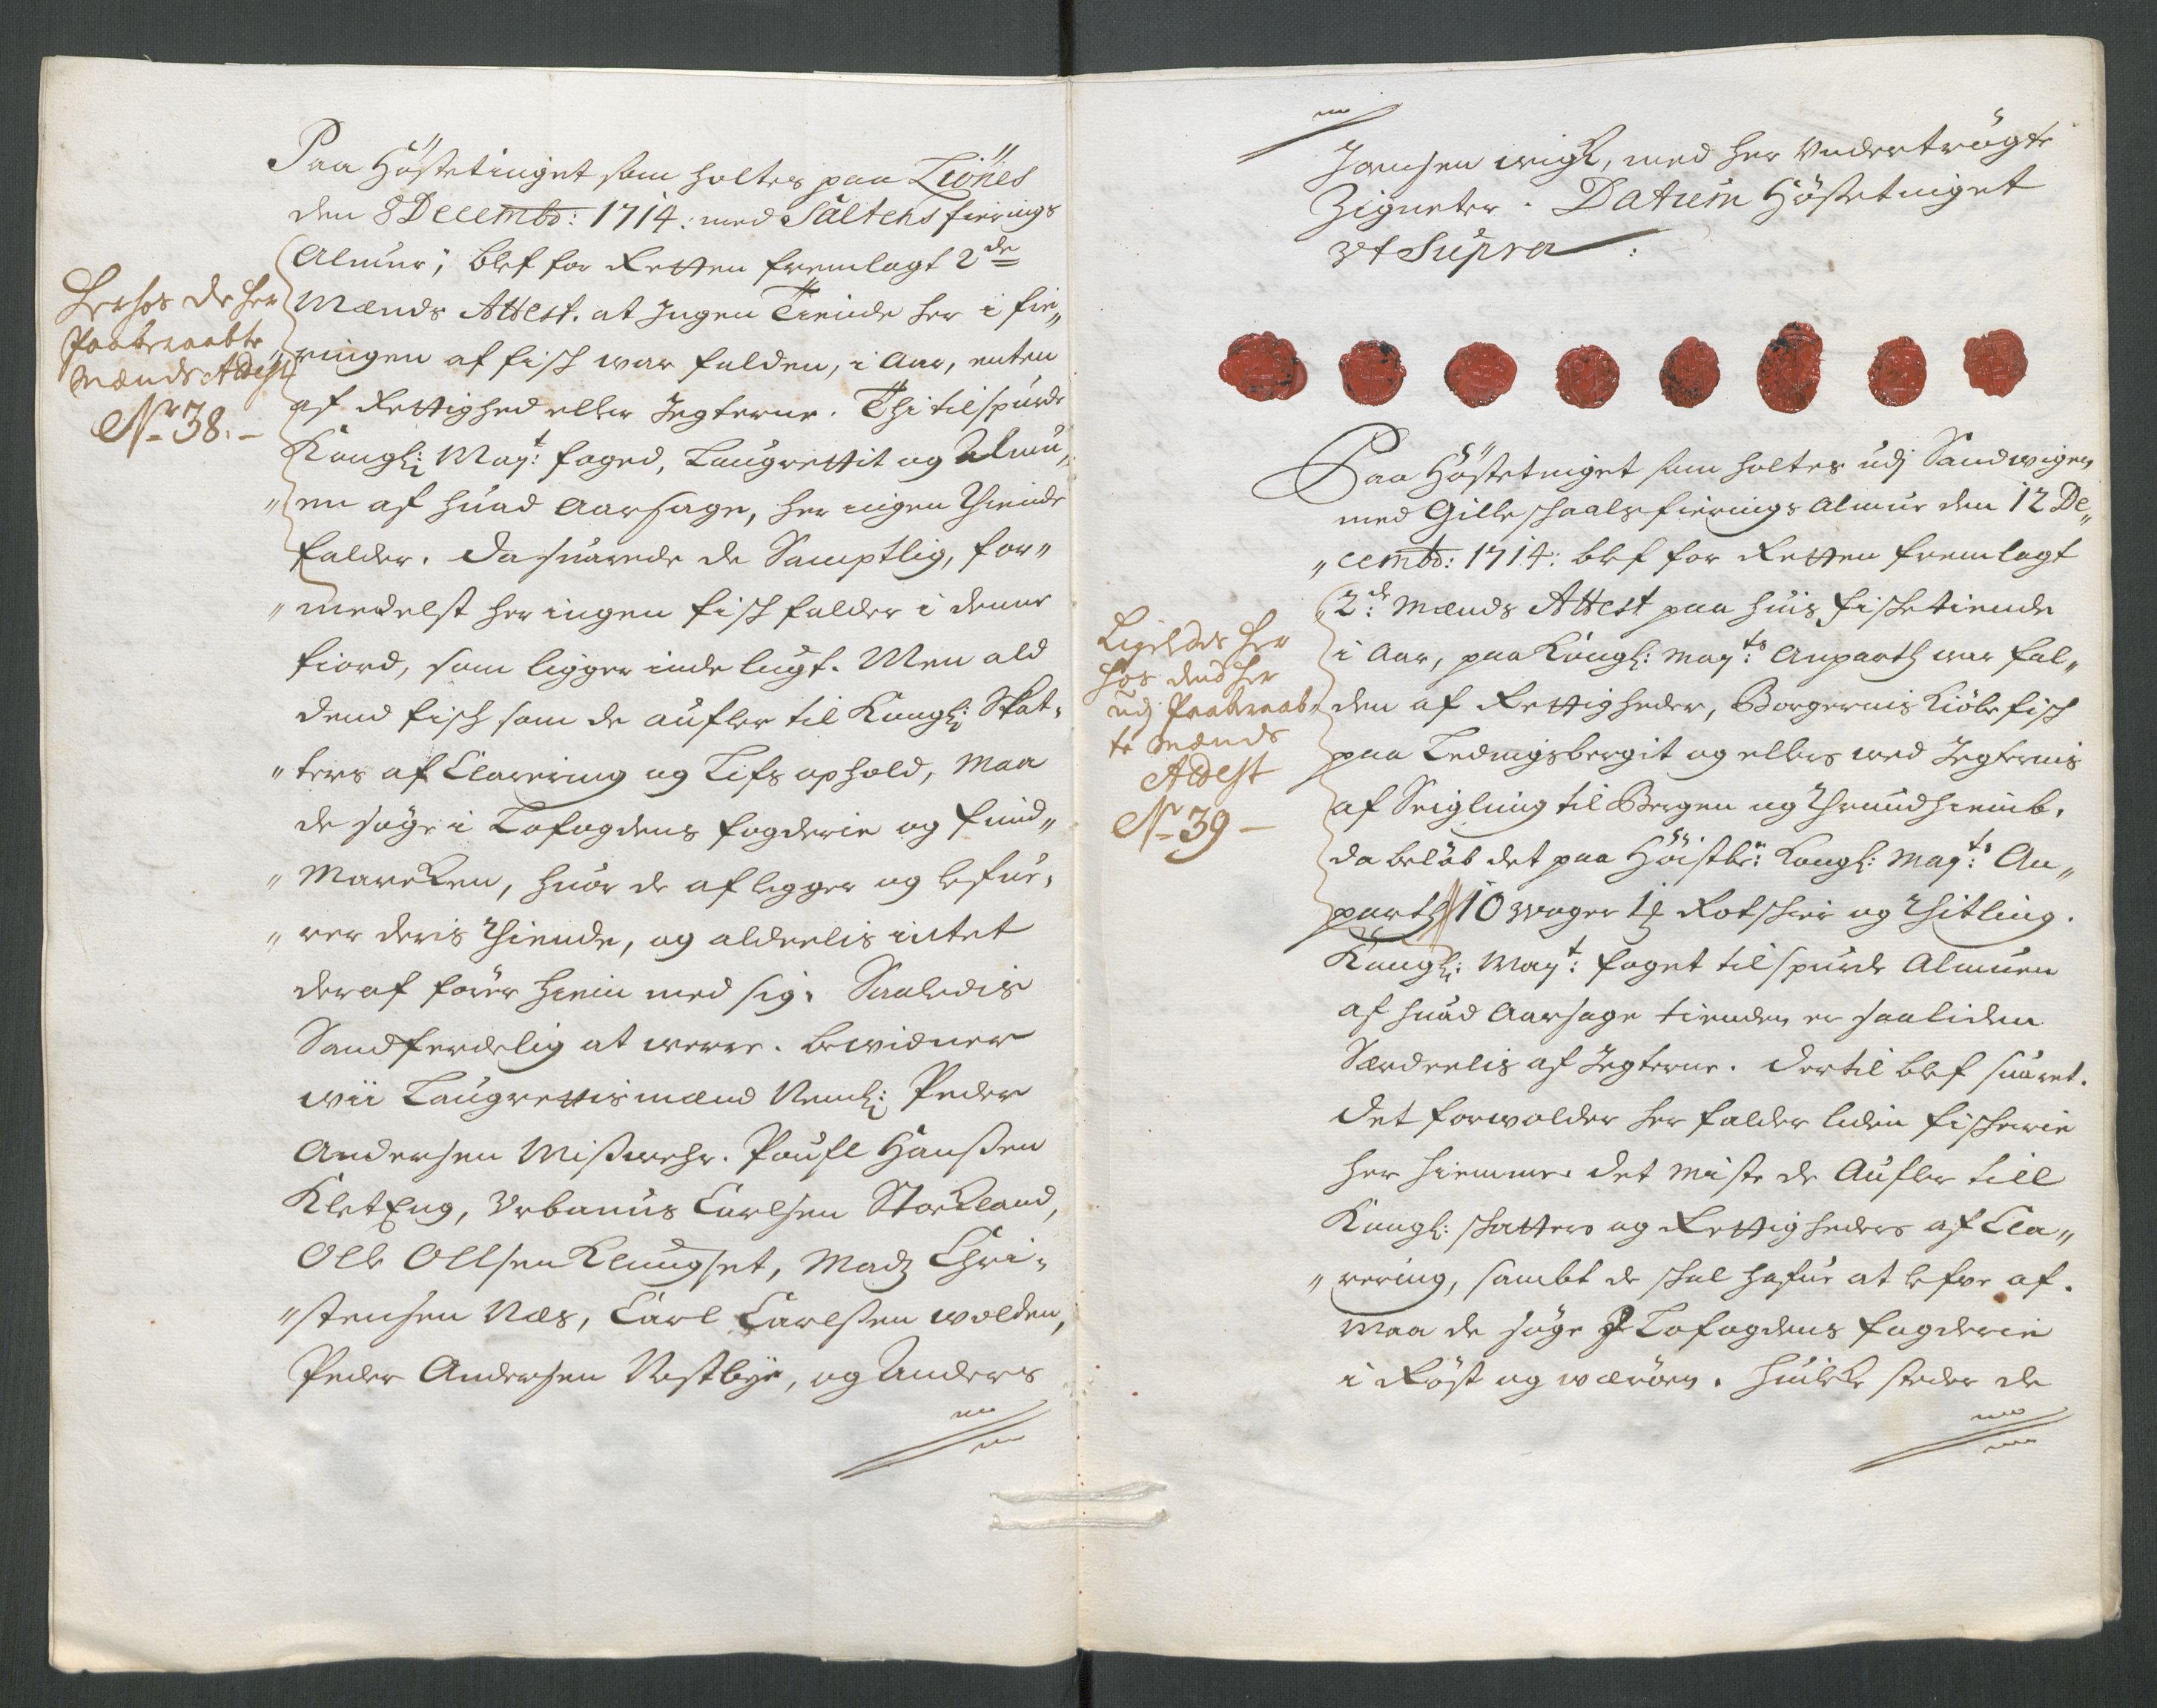 Paa Höstetinget som holtes paa Liönes
den 8 Decembr: 1714: med Saltens fierings
Almue; blef for Retten fremlagt 2de
Mænds Attest. at Ingen Tiende her i fie„
ringen af fisk war falden, i Aar, enten
af Rettighed eller Jegterne. Thi tilspurde
Kongl: May:t foged, Laugrettit og Almu„
„en af huad Aarsage, her ingen Thiende
falder. da suarede de Samptlig, for„
„medelst her ingen fisk falder i denne
fiord, som ligger inde lugt. Men ald
dend fisk som de aufler til Kongl: Skat„
„ters af Clarering og Lifs ophold, Maa
de söge i Lofodens fogderie og find„
„Marcken, huor de aflegger og lefue„
„rer deris Thiende, og alderlis intet
deraf förer hiem med sig. Saaledis
Sandferdelig at were. bewidner
wii Laugrettismænd Neml: Peder
Andersen Miswehr. Poufl Hanssen
Kletteng, Urbanus Carlsen Storland,
Olle Ollsen Klungset, Madz Chri„
„stensen Næs, Carl Carlssen wolden,
Peder Andersen Westbye, og Anders
Herhos de her
Paaberaabte
Mænds Attest
No 38. –
Jonsen wigh, med her Undertrögte
Zigneter. Datum Höstetinget
Ut Supra:
Paa Höstetinget som holtes udj Sandwigen
med Gilleskaals fierings Almue den 12 De„
„cembr: 1714: blef for Retten fremlagt
2de Mænds Attest paa huis fisketiende
i Aar, paa Kongl: May:ts Anparth war fal„
den af Rettigheder, Borgernis Kiöbe fisk
paa Ledingsbergit og ellers med Jegternis
af Seigling til Bergen og Thrundhiemb.
da belöb det paa Höistbr: Kongl: May:ts An„
parth 10 woger 1 Rotskier og Thitling.
Kongl: May:t foget tilspurde Almuen
af huad Aarsage tienden er saa liden
Særdeelis af Jegterne. dertil blef suaret.
det forwolder her falder liden fiskerie
her hiemme. det meste de Aufler till
Kongl: skatters og Rettigheders af Cla„
„rering, sambt de skal hafue at lefve af.
Maa de söge J Lofodens fogderie
i Röst og wæröen. Huilcke steder de
Ligeledes her
hos dend her
udj Paaberaab„
te Mænds
Attest
No 39 –